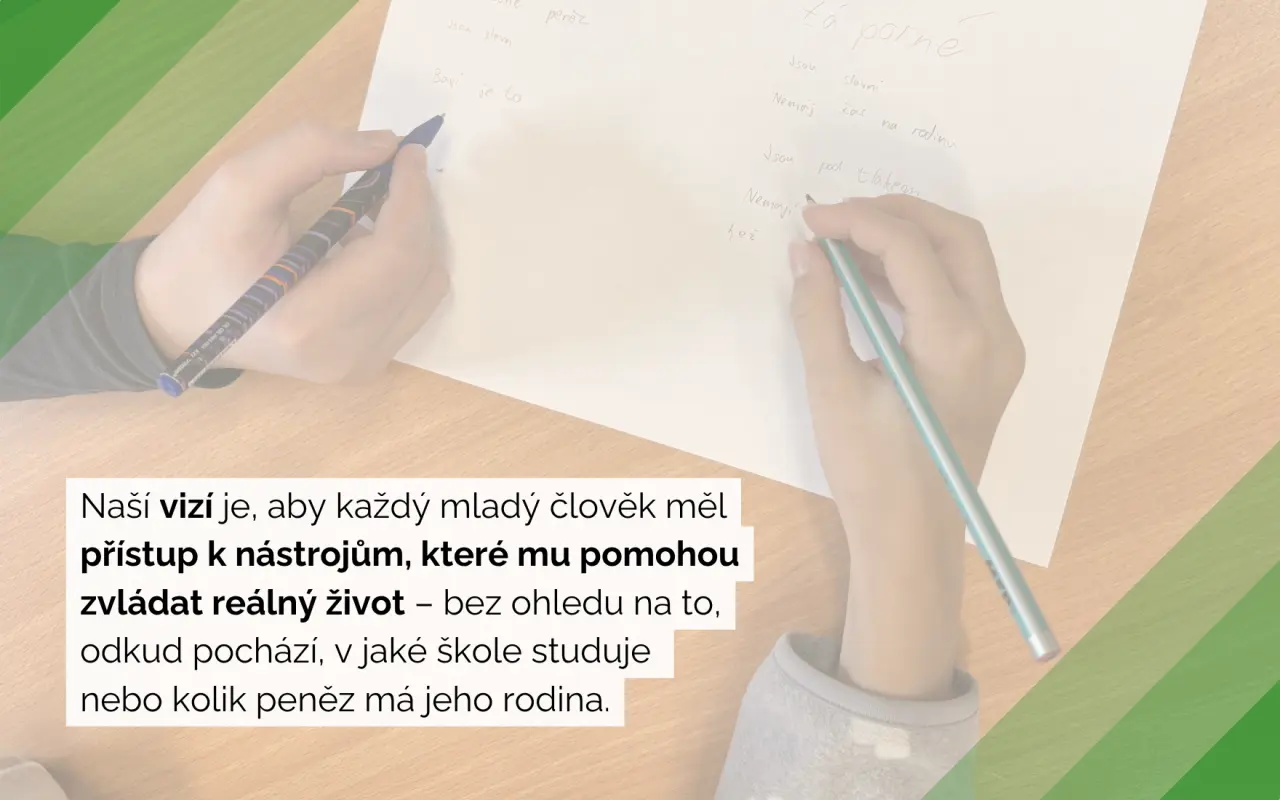 peněz
Jsou slavn
Baví je to
Jsou slavní
Nemají čas na rodinu
Jsou pod
Nemají
řeč
Naší vizí je, aby každý mladý člověk měl
přístup k nástrojům, které mu pomohou
zvládat reálný život – bez ohledu na to,
odkud pochází, v jaké škole studuje
nebo kolik peněz má jeho rodina.